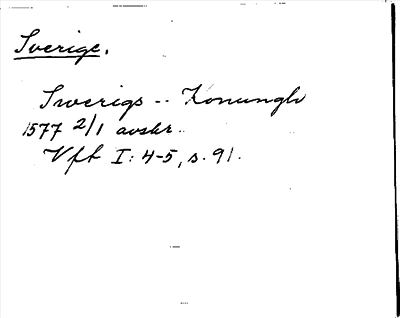 Sverige.
Swerigs -- Konungh
1577 2/1 avskr.
Vft I: 4-5, s. 91.